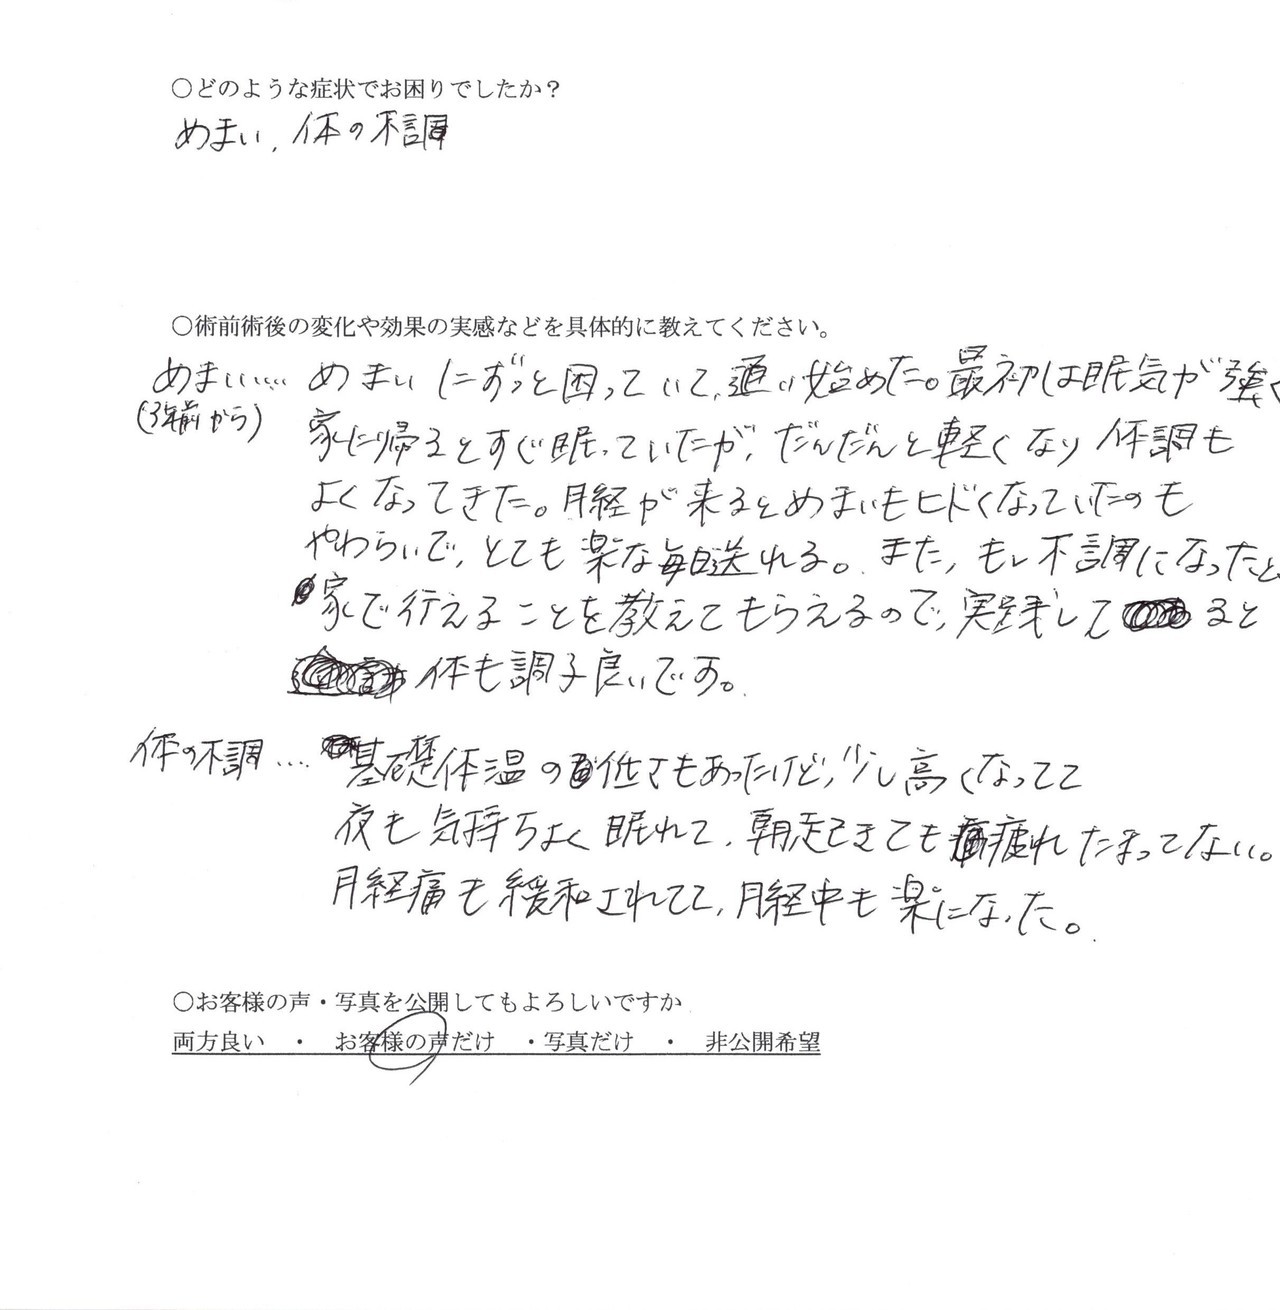 ○どのような症状でお困りでしたか？
めまい、体の不調
○術前術後の変化や効果の実感などを具体的に教えてください。
めまい…… めまいにずっと困っていて、通い始めた。最初は眠気が強く
(3年前から)
家に帰るとすぐ眠っていたが、だんだんと軽くなり体調も
よくなってきた。月経が来るとめまいもヒドくなっていたのも
やわらいで、とても楽な毎日送れる。また、もし不調になったと
家で行えることを教えてもらえるので、実践して ると
体も調子良いです。
体の不調… 基礎体温の低さもあったけど、少し高くなってて
夜も気持ちよく眠れて、朝起きても疲れたまってない。
月経痛も緩和されてて、月経中も楽になった。
○お客様の声・写真を公開してもよろしいですか
両方良い ・ お客様の声だけ ・写真だけ ・ 非公開希望